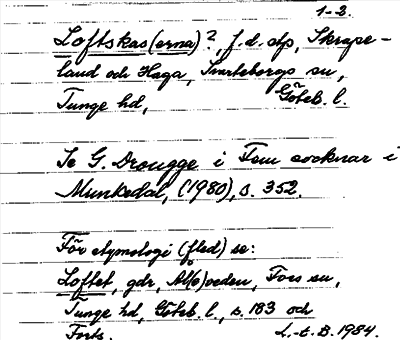 1-2.
Loftskas(erna)?, f.d. dtp, Skrape-
land och Haga, Svarteborgs sn,
Tunge hd, Göteb. l.
Se G. Drougge i Fem socknar i
Munkedal, (1980), s. 352.
För etymologi (fled) se:
Loftet, gdr, Foss sn,
Tunge hd, Göteb. l., s. 183 och
Forts. L.-t. B. 1984.